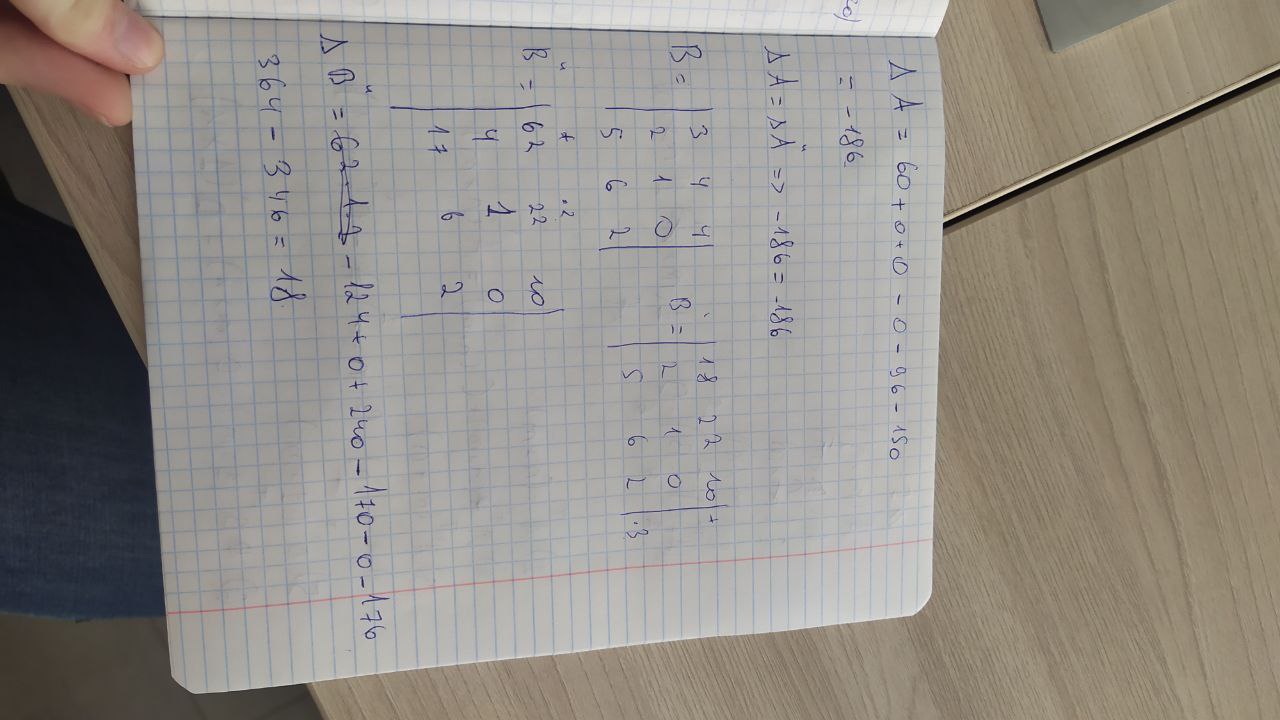 Δ A = 60 + 0 + 0 - 0 - 96 - 150
= - 186
Δ A = Δ A" => - 186 = - 186
B = | 3 4 4 | B' = | 18 22 10 | +
2 1 0 2 1 0
5 6 2 5 6 2 ·3
+ ·2
B" = | 62 22 10 |
4 1 0
17 6 2
Δ B" = 124 + 0 + 240 - 170 - 0 - 176
364 - 346 = 18